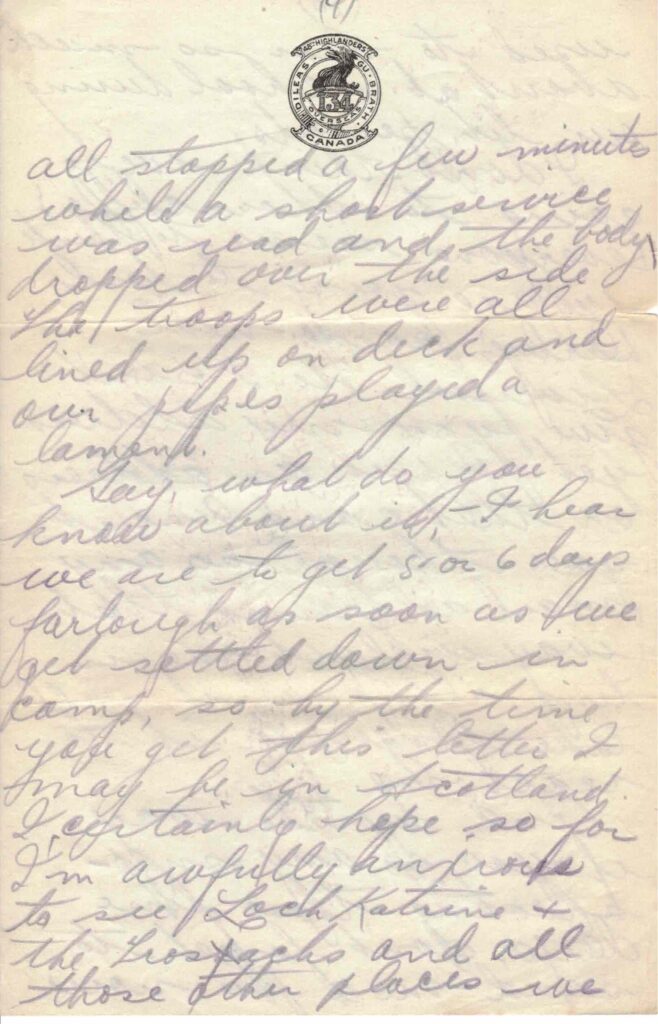 (4)
48TH HIGHLANDERS
DILEAS GU BRATH
134
OVERSEAS
CANADA
all stopped a few minutes
while a short service
was read and the body
dropped over the side
The troops were all
lined up on deck and
our pipes played a
lament.
Say, what do you
know about it, - I hear
we are to get 5 or 6 days
farlough as soon as we
get settled down in
camp, so by the time
you get this letter I
may be in Scotland.
I certainly hope so for
I'm awfully anxious
to see Loch Katrine +
the Trossachs and all
those other places we